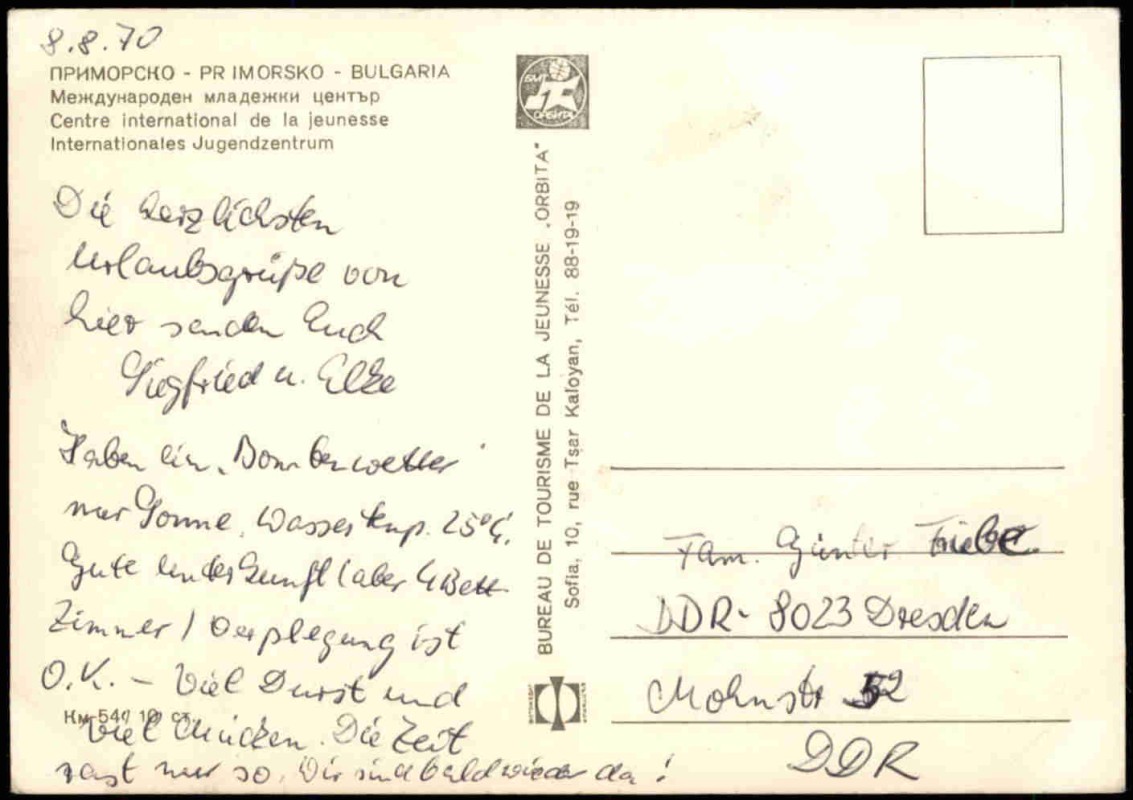 8.8.70
ПРИМОРСКО - PRIMORSKO - BULGARIA
Международен младежки център
Centre international de la jeunesse
Internationales Jugendzentrum
Die herzlichsten
Urlaubsgrüße von
hier senden Euch
Siegfried u. Elke
Haben ein „Bombenwetter"
nur Sonne, Wassertemp. 25°C.
Gute Unterkunft (aber 4 Bett-
Zimmer) Verplegung ist
O.K. – Viel Durst und
viel Mücken. Die Zeit
rast nur so. Wir sind bald wieder da!
Км 541 10 ст.
БМТ
ОРБИТА
BUREAU DE TOURISME DE LA JEUNESSE „ORBITA"
Sofia, 10, rue Tsar Kaloyan, Tél. 88-19-19
Fam. Günter Friebe.
DDR- 8023 Dresden
Mohnstr 52
DDR